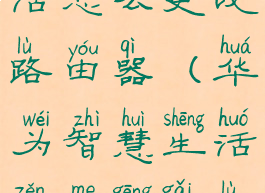 活怎么更改
lù yóu qì huá
路由器（华
wéi zhì huì shēng huó
为智慧生活
zěn me gēng gǎi lù